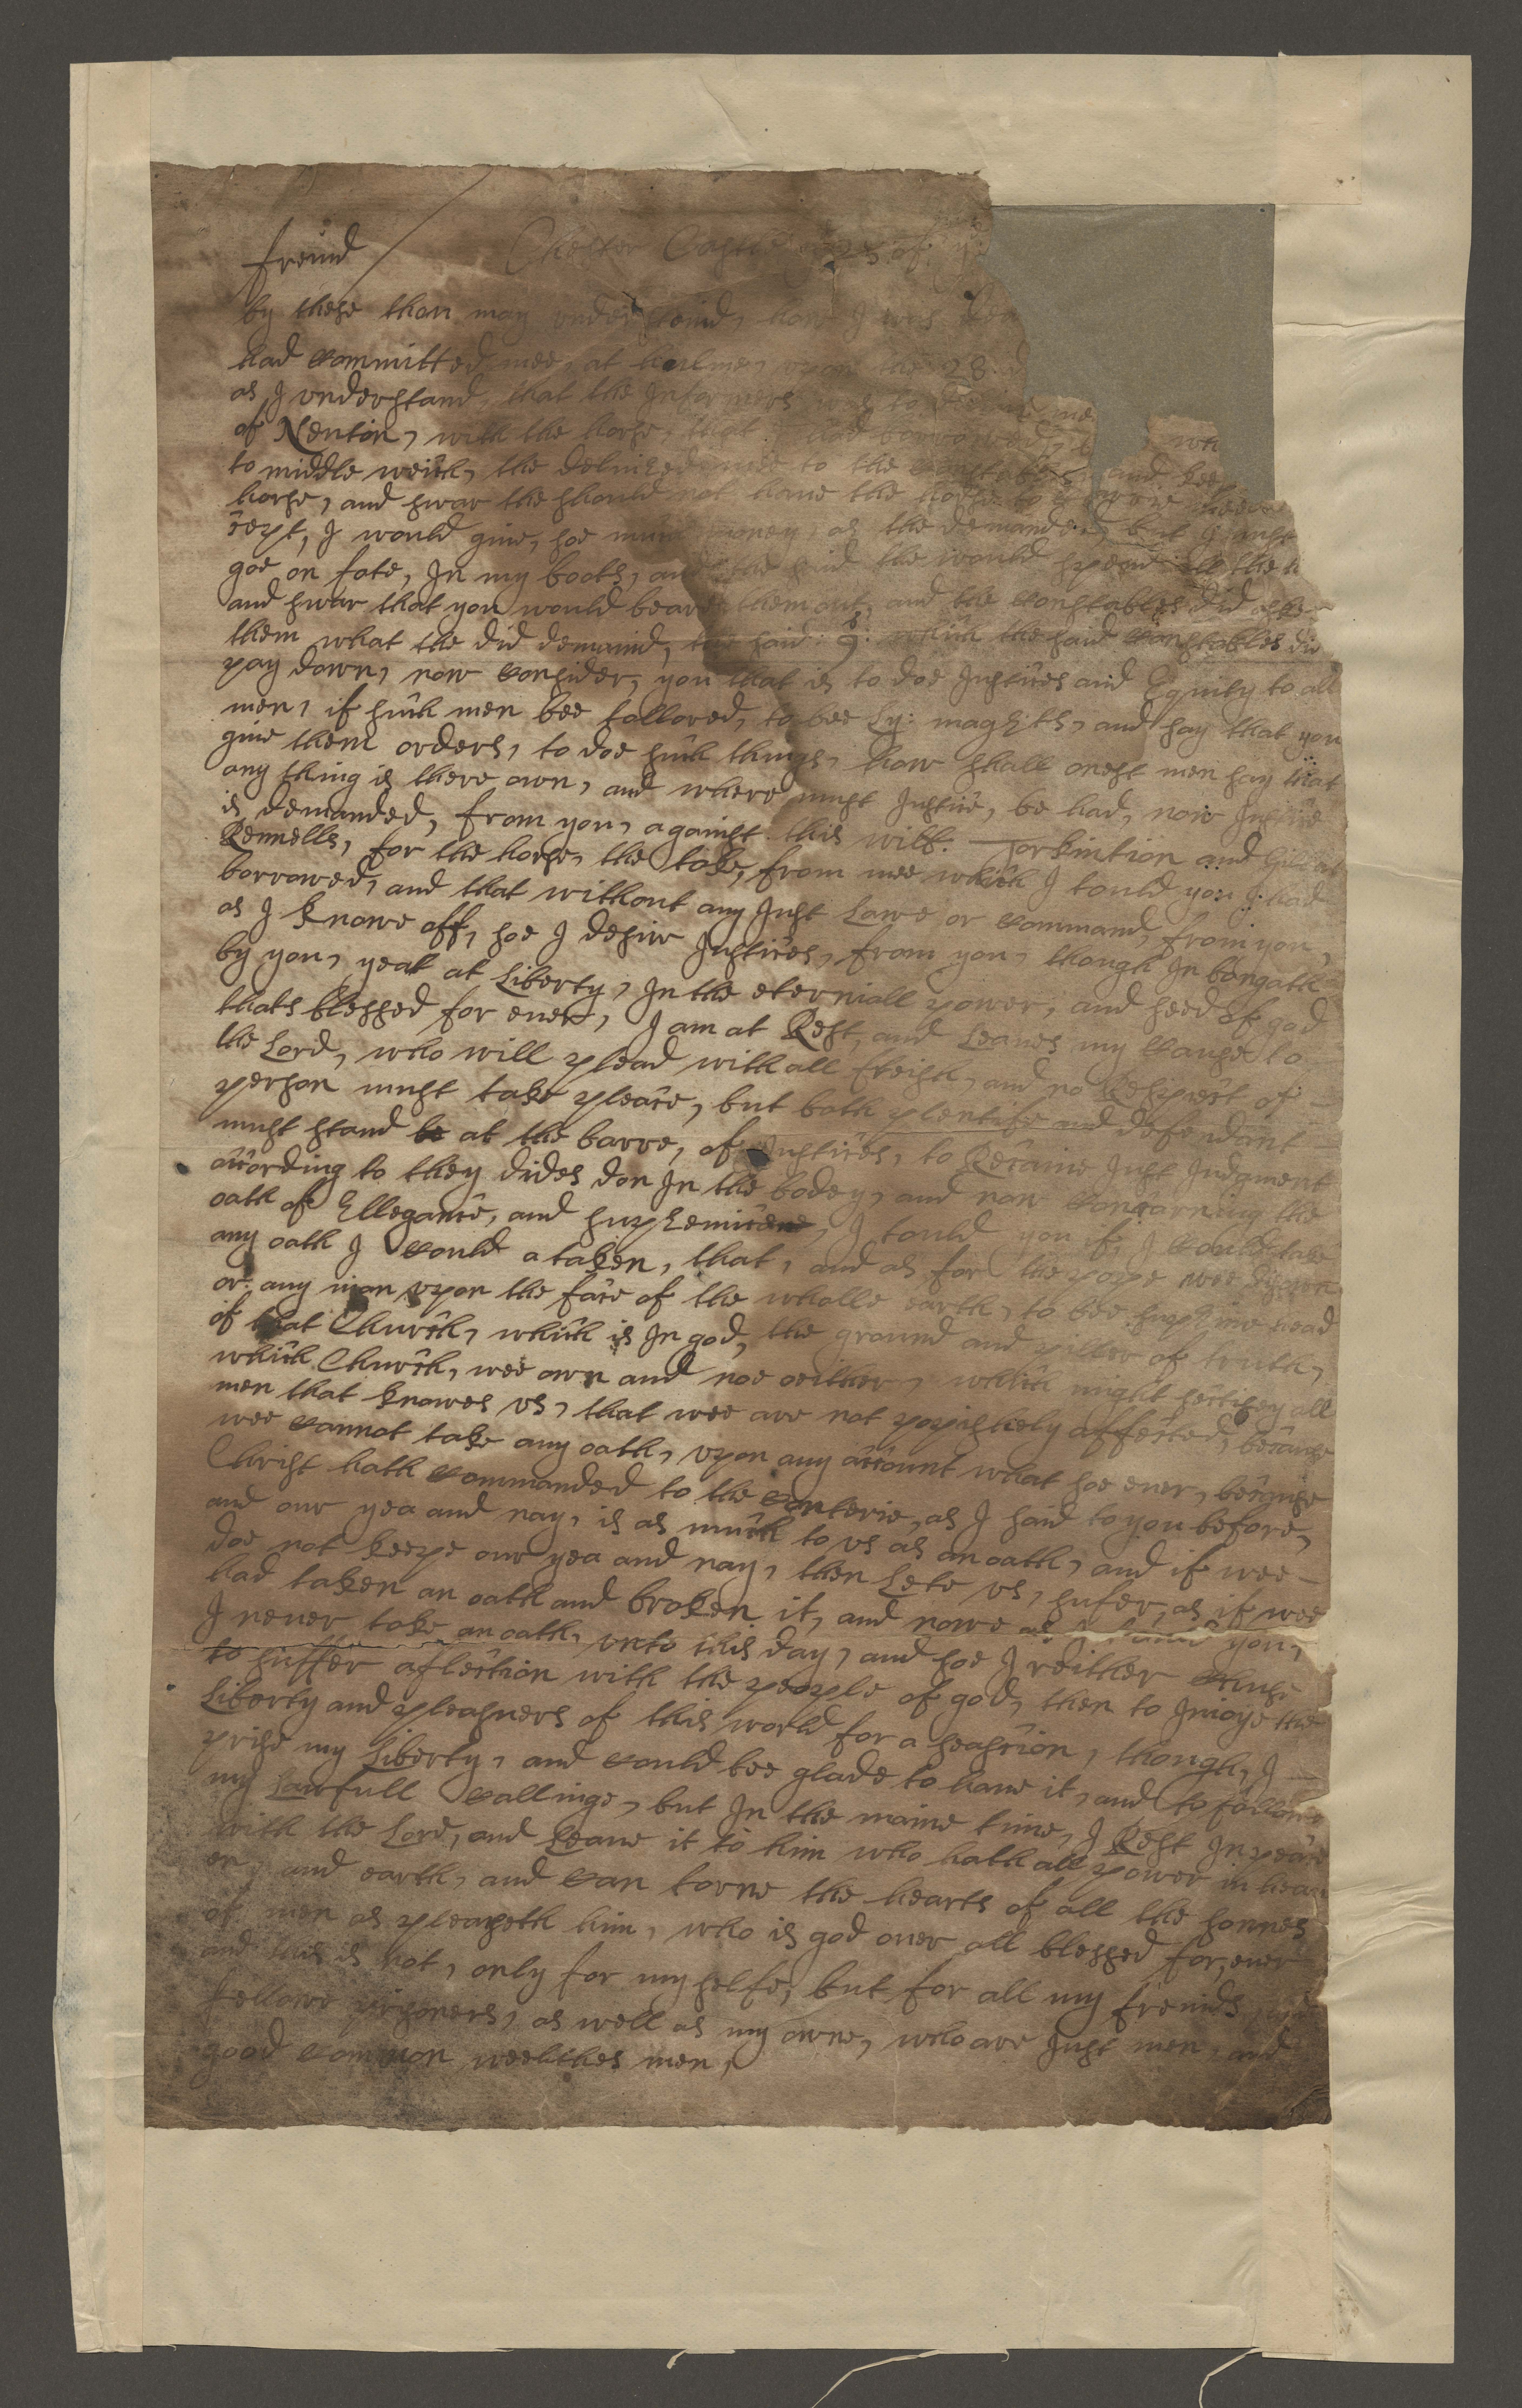 freind Chester Castle 23 of
by these thou may understand, how I was
had committed mee, at hulme, upon the 28
as I understand, that the Informers was to
of Newton, with the horse, that I had borrowed,
to middle weich, the deliuered mee to the constables, and
horse, and swar the should not haue the horse to
cept, I would giue, soe much money as the demanded, but I must
goe on fote, In my boots, and the said the would spend all the
and swar that you would beare them out, and the constables did aske
them what the did demaind, the said : 9s: which the said constables did
pay down, now consider, you that is to doe Justices and Equity to all
men, if such men bee followed, to bee Ly: magsits, and say that you
giue them orders, to doe such things, how shall onest men say that
any thing is there own, and where must Justice, be had, now Justice
is demanded, from you, against this will. Torkintion and
Rennells, for the horse, the toke, from mee which I tould you I had
borrowed, and that without any Just Lawe or command, from you,
as I knowe off, soe I desire Justices, from you, though In bongath
by you, yeat at Liberty, In the eterniall power, and seed of god
thats blessed for euer, I am at Rest, and Leaues my cause to
the Lord, who will plead with all flesh, and no Respect of
person must take pleace, but both plentife and defendant
must stand be at the barre, of Justices, to Recaiue Just Judgment
according to they dides don In the bodey, and now concarning the
oath of Ellegance, and supremicene, I tould you if, I could take
any oath I could a taken, that, and as for the pope wee disown
or any man upon the face of the wholle earth, to bee supreme head
of that Church, which is In god, the ground and piller of truth,
which Church, wee own and noe oeither, which might settisey all
men that knowes us, that wee are not popishely affected, because
wee cannot take any oath, upon any account what soe euer, because
Christ hath commanded to the conterie, as I said to you before,
and our yea and nay, is as much to us as an oath, and if wee
doe not keepe our yea and nay, then Lete us, sufer, as if wee
had taken an oath and broken it, and nowe as I you,
I neuer toke an oath, unto this day, and soe I reither chuse
to suffer aflection with the people of god, then to Inioye the
Liberty and pleasuers of this world for a seascion, though, I
prise my Liberty, and could bee glade to haue it, and to follow
my Lawfull callinge, but In the maine time, I Rest In peace
with the Lord, and Leaue it to him who hath all power in heau
en, and earth, and can torne the hearts of all the sonnes
of men as pleaseth him, who is god ouer all blessed for,euer
and this is not, only for my selfe, but for all my freinds, and
fellowe prisoners, as well as my owne, who are Just men, and
good common weelthes men,